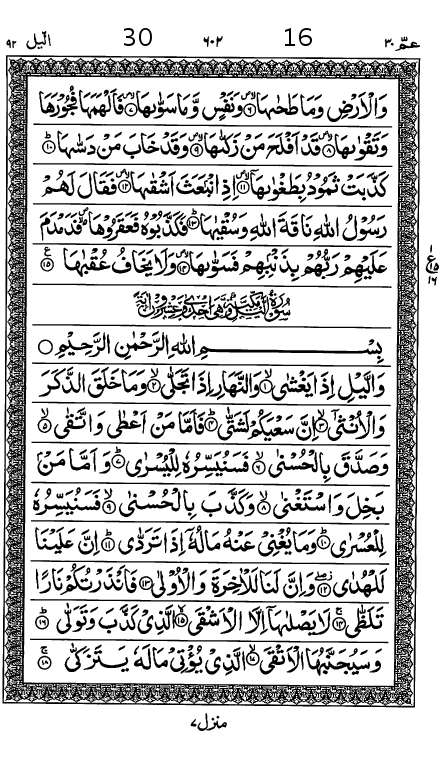 عمّ ٣٠ 16 ٦٠٢ 30 الّيل ٩٢
وَالۡاَرۡضِ وَمَا طَحٰىهَا ۙ‏﴿۶﴾ وَنَفۡسٍ وَّمَا سَوّٰٮهَا ۙ‏﴿۷﴾ فَاَلۡهَمَهَا فُجُوۡرَهَا
وَتَقۡوٰٮهَا ۙ‏﴿۸﴾ قَدۡ اَفۡلَحَ مَنۡ زَكّٰٮهَا ۙ‏﴿۹﴾ وَقَدۡ خَابَ مَنۡ دَسّٰٮهَا ؕ‏﴿۱۰﴾
كَذَّبَتۡ ثَمُوۡدُ بِطَغۡوٰٮهَاۤ ۙ‏﴿۱۱﴾ اِذِ انۡۢبَعَثَ اَشۡقٰٮهَا ۙ‏﴿۱۲﴾ فَقَالَ لَهُمۡ
رَسُوۡلُ اللّٰهِ نَاقَةَ اللّٰهِ وَسُقۡيٰهَا ؕ‏﴿۱۳﴾ فَكَذَّبُوۡهُ فَعَقَرُوۡهَا ۙ فَدَمۡدَمَ
عَلَيۡهِمۡ رَبُّهُمۡ بِذَنۡۢبِهِمۡ فَسَوّٰٮهَا ۙ‏﴿۱۴﴾ وَلَا يَخَافُ عُقۡبٰهَا ﴿۱۵﴾ ع
١ ع ١٥ ١٦
بِسۡمِ اللّٰهِ الرَّحۡمٰنِ الرَّحِيۡمِ ○
وَالَّيۡلِ اِذَا يَغۡشٰى ۙ‏﴿۱﴾ وَالنَّهَارِ اِذَا تَجَلّٰى ۙ‏﴿۲﴾ وَمَا خَلَقَ الذَّكَرَ
وَالۡاُنۡثٰٓى ۙ‏﴿۳﴾ اِنَّ سَعۡيَكُمۡ لَشَتّٰى ؕ‏﴿۴﴾ فَاَمَّا مَنۡ اَعۡطٰى وَاتَّقٰى ۙ‏﴿۵﴾
وَصَدَّقَ بِالۡحُسۡنٰى ۙ‏﴿۶﴾ فَسَنُيَسِّرُهٗ لِلۡيُسۡرٰى ؕ‏﴿۷﴾ وَاَمَّا مَنۡۢ
بَخِلَ وَاسۡتَغۡنٰى ۙ‏﴿۸﴾ وَكَذَّبَ بِالۡحُسۡنٰى ۙ‏﴿۹﴾ فَسَنُيَسِّرُهٗ
لِلۡعُسۡرٰى ؕ‏﴿۱۰﴾ وَمَا يُغۡنِىۡ عَنۡهُ مَالُهٗۤ اِذَا تَرَدّٰى ؕ‏﴿۱۱﴾ اِنَّ عَلَيۡنَا
لَلۡهُدٰى ۖ‏﴿۱۲﴾ وَاِنَّ لَنَا لَـلۡاٰخِرَةَ وَالۡاُوۡلٰى‏ ﴿۱۳﴾ فَاَنۡذَرۡتُكُمۡ نَارًا
تَلَظّٰى‌ ۚ‏﴿۱۴﴾ لَا يَصۡلٰٮهَاۤ اِلَّا الۡاَشۡقَى ۙ‏﴿۱۵﴾ الَّذِىۡ كَذَّبَ وَتَوَلّٰى ؕ‏﴿۱۶﴾
وَسَيُجَنَّبُهَا الۡاَتۡقَى ۙ‏﴿۱۷﴾ الَّذِىۡ يُؤۡتِىۡ مَالَهٗ يَتَزَكّٰى‌ ۚ‏﴿۱۸﴾
منزل ٧